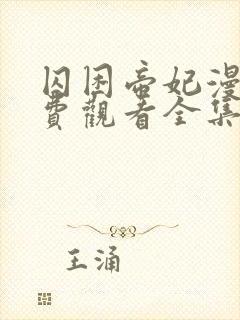 囚困帝妃漫
費觀看全集
王涌